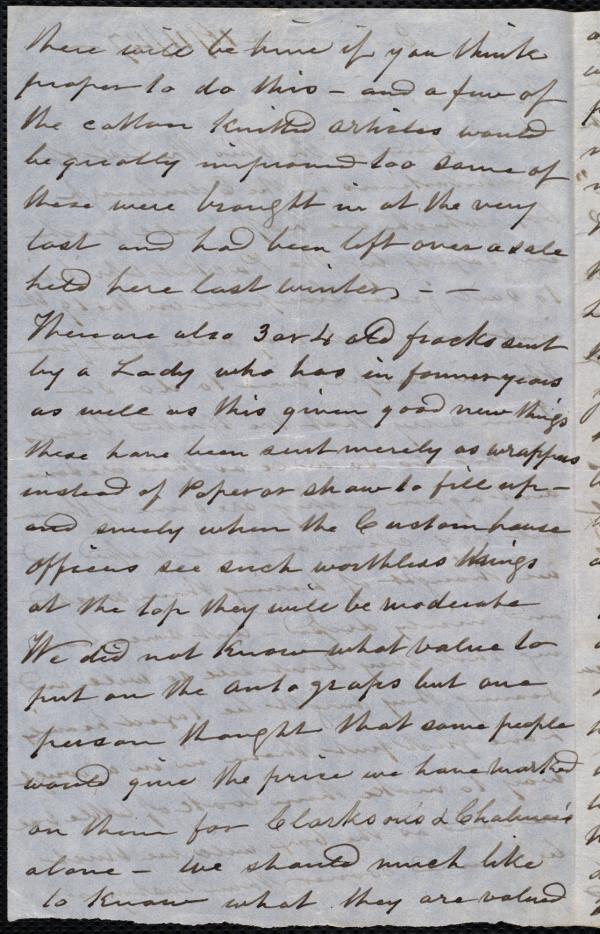 there will be time if you think
proper to do this - and a few of
the cotton knitted articles would
be greatly improved too some of
these were brought in at the very
last and had been left over a sale
held here last winter - -
There are also 3 or 4 old frocks sent
by a Lady who has in former years
as well as this given good new things
these have been sent merely as wrappers
instead of Paper or straw to fill up -
and surely when the Custom house
officers see such worthless things
at the top they will be moderate
We did not know what value to
put on the autographs but one
person thought that some people
would give the price we have marked
on them for Clarkson's & Chalmers's
alone - We should much like
to know what they are valued